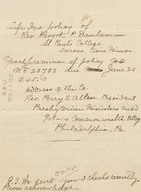 Life Ins. policy of
Rev. Harootune
St. Paul's College,
Tarsus, Asia Minor
Yearly premium of policy
No. 23783 due June 23
$45.
Address of the Co.
Rev. Perry S. Allen, President
Presbyterian Ministers Fund
Commonwealth Bldg
Philadelphia, Pa.
P.S. We sent you 3 checks recently
Please acknowledge